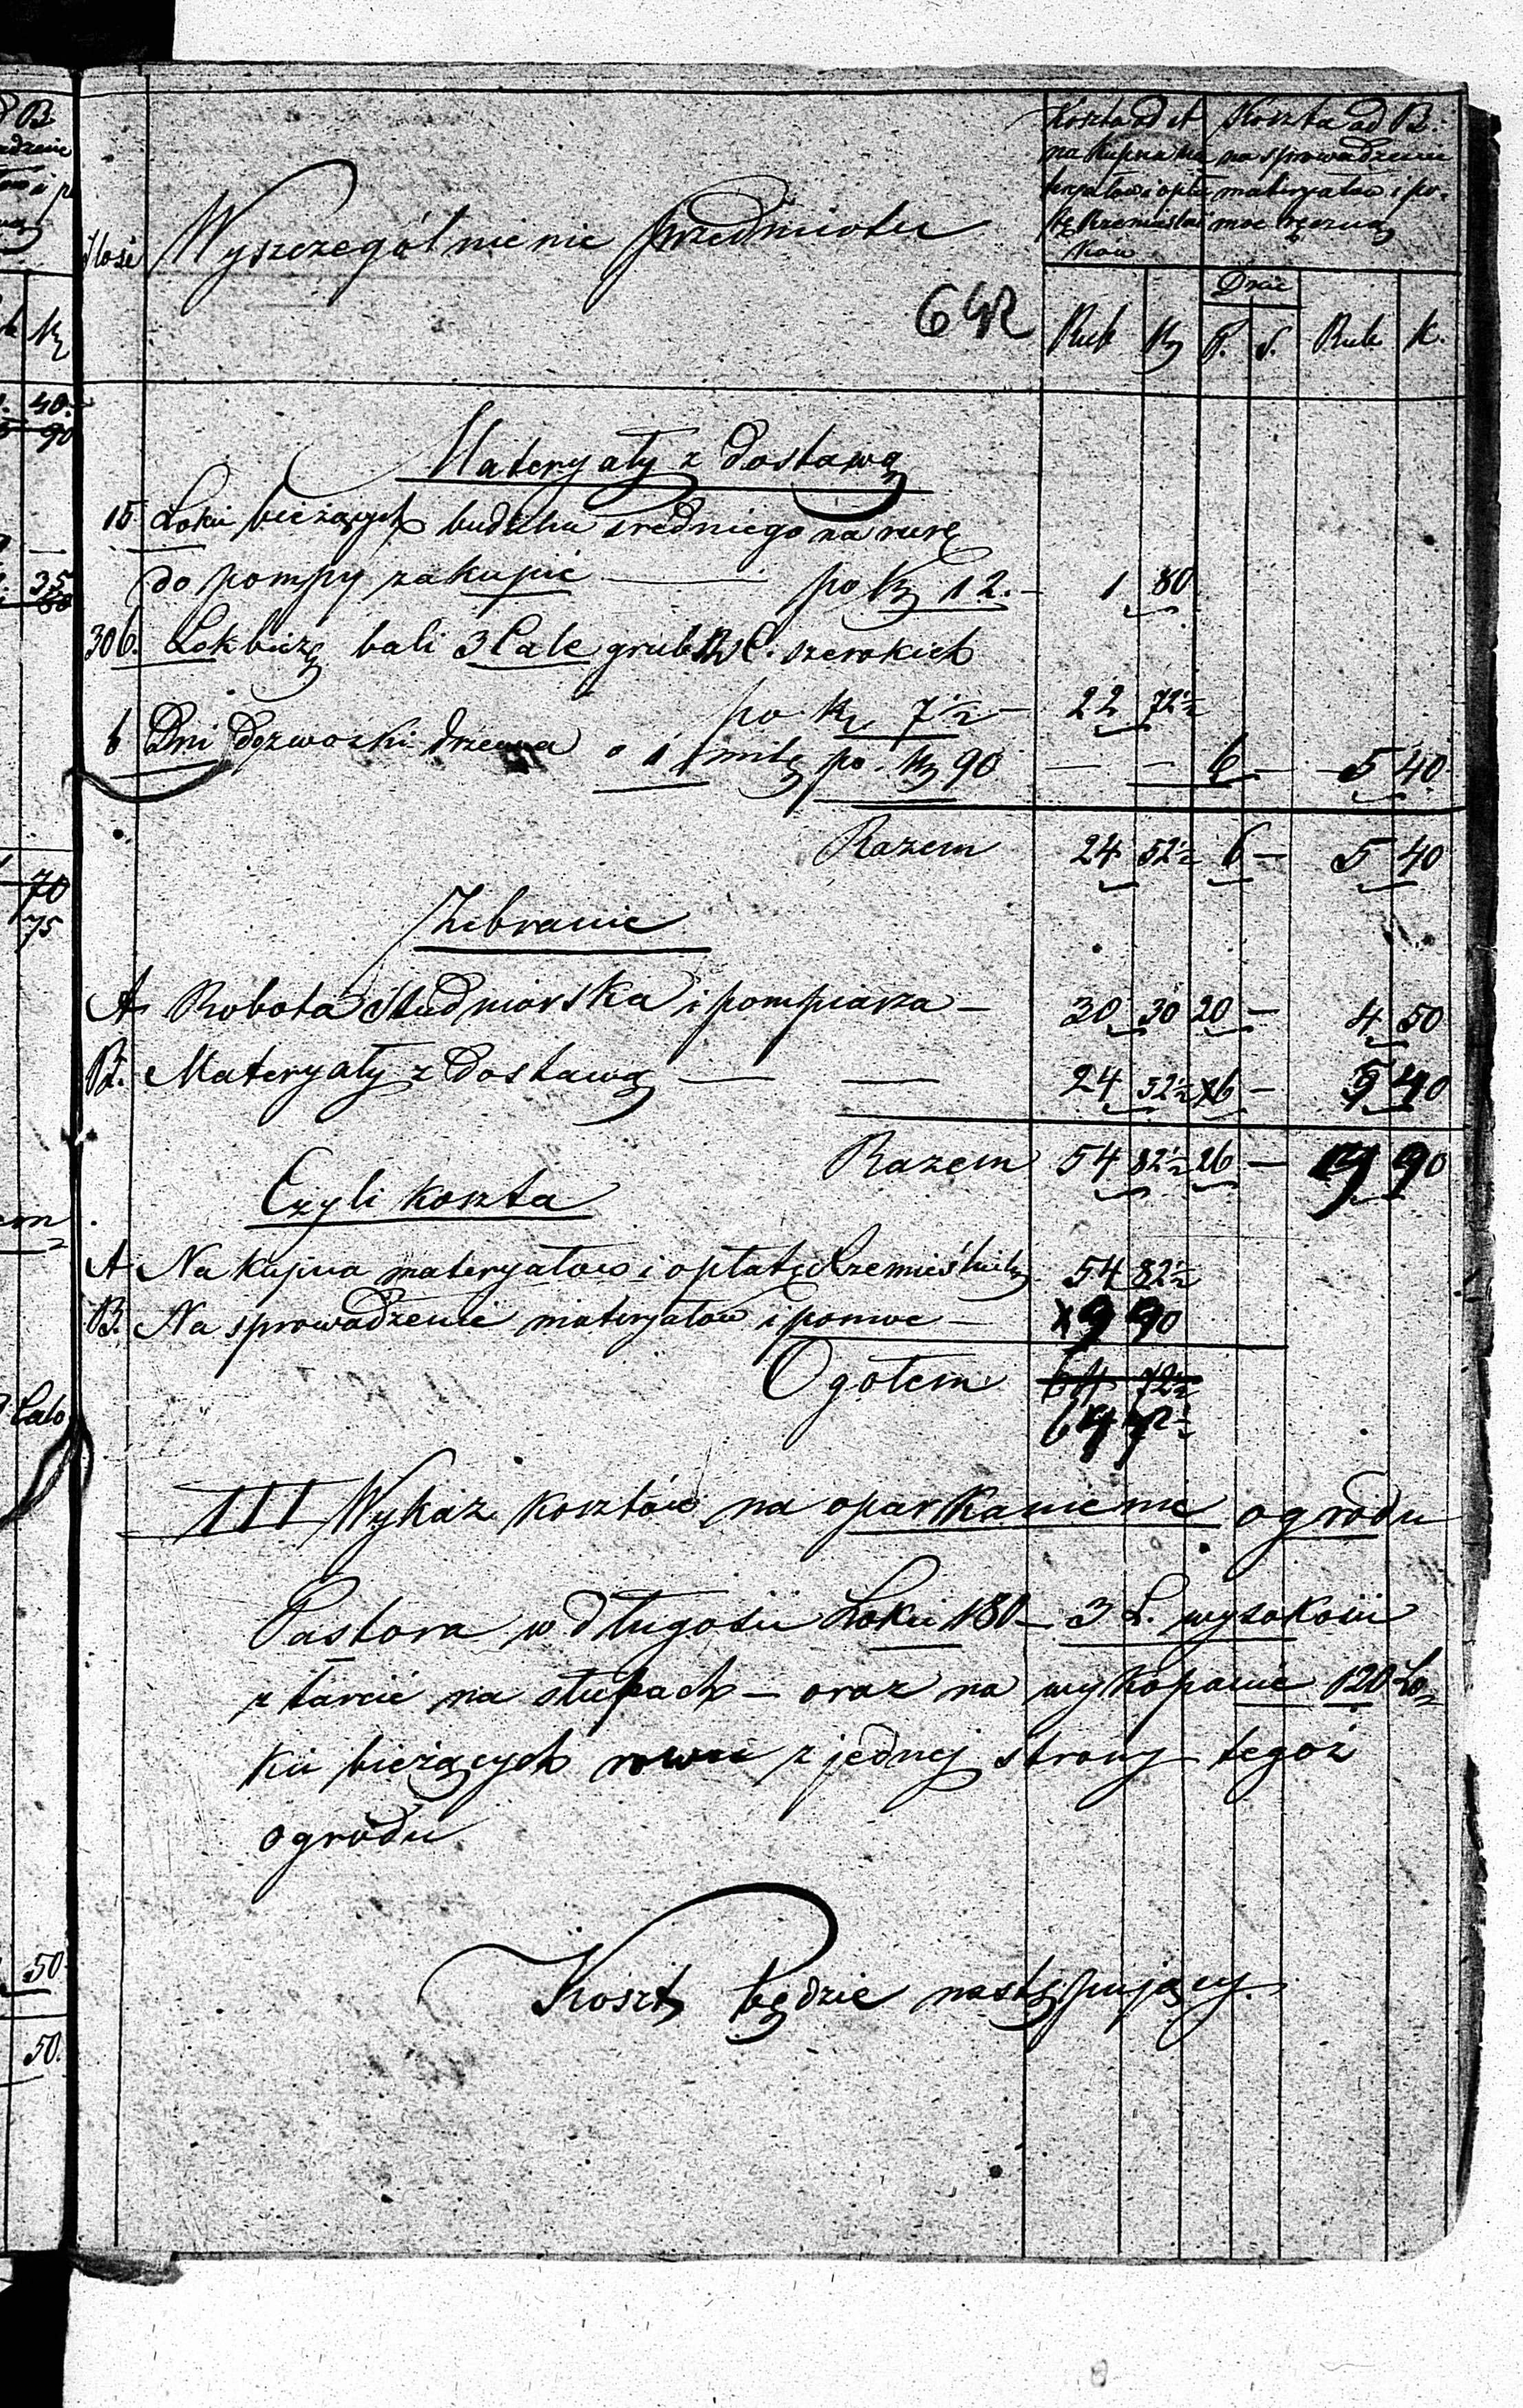 Ilość
Wyszczególnienie przedmiotu
Koszta ad A
na kupna ma
teryałów i opła
tę Rzemieślni
ków
Koszta ad B.
na sprowadzenie
materyałów i po-
moc ręczną
Dnie
642
Rub K P. S. Rub. K.
Materyały z dostawą
15 Łokci bieżących budulcu średniego na rurę
do pompy zakupić — po K 12. – 1 80
306. Łok bieżą bali 3 Cale grub C. szerokich
po K. 7½ – 22 72½
6 Dni do zwózki drzewa o 1 milę po K 90 — – 6 – 5 40
Razem 24 52½ 6 — 5 40
Zebranie
A Robota Studniarska i pompiarza – 30 30 20 – 4 50
B. Materyały z dostawą — — 24 52½ 6 – 5 40
Razem 54 82½ 26 — 9 90
Czyli koszta
A Na kupna materyałów i opłatę Rzemieślnika 54 82½
B. Na sprowadzenie materyałów i pomoc – 9 90
Ogółem 64 72½
64 72½
III Wykaz kosztów na oparkanienie ogrodu
Pastora w długości Łokci 180 – 3 Ł. wysokości
z tarcic na słupach – oraz na wykopanie 120 Ło-
kci bieżących rowu z jednej strony tegoż
ogrodu
Koszt będzie następujący.